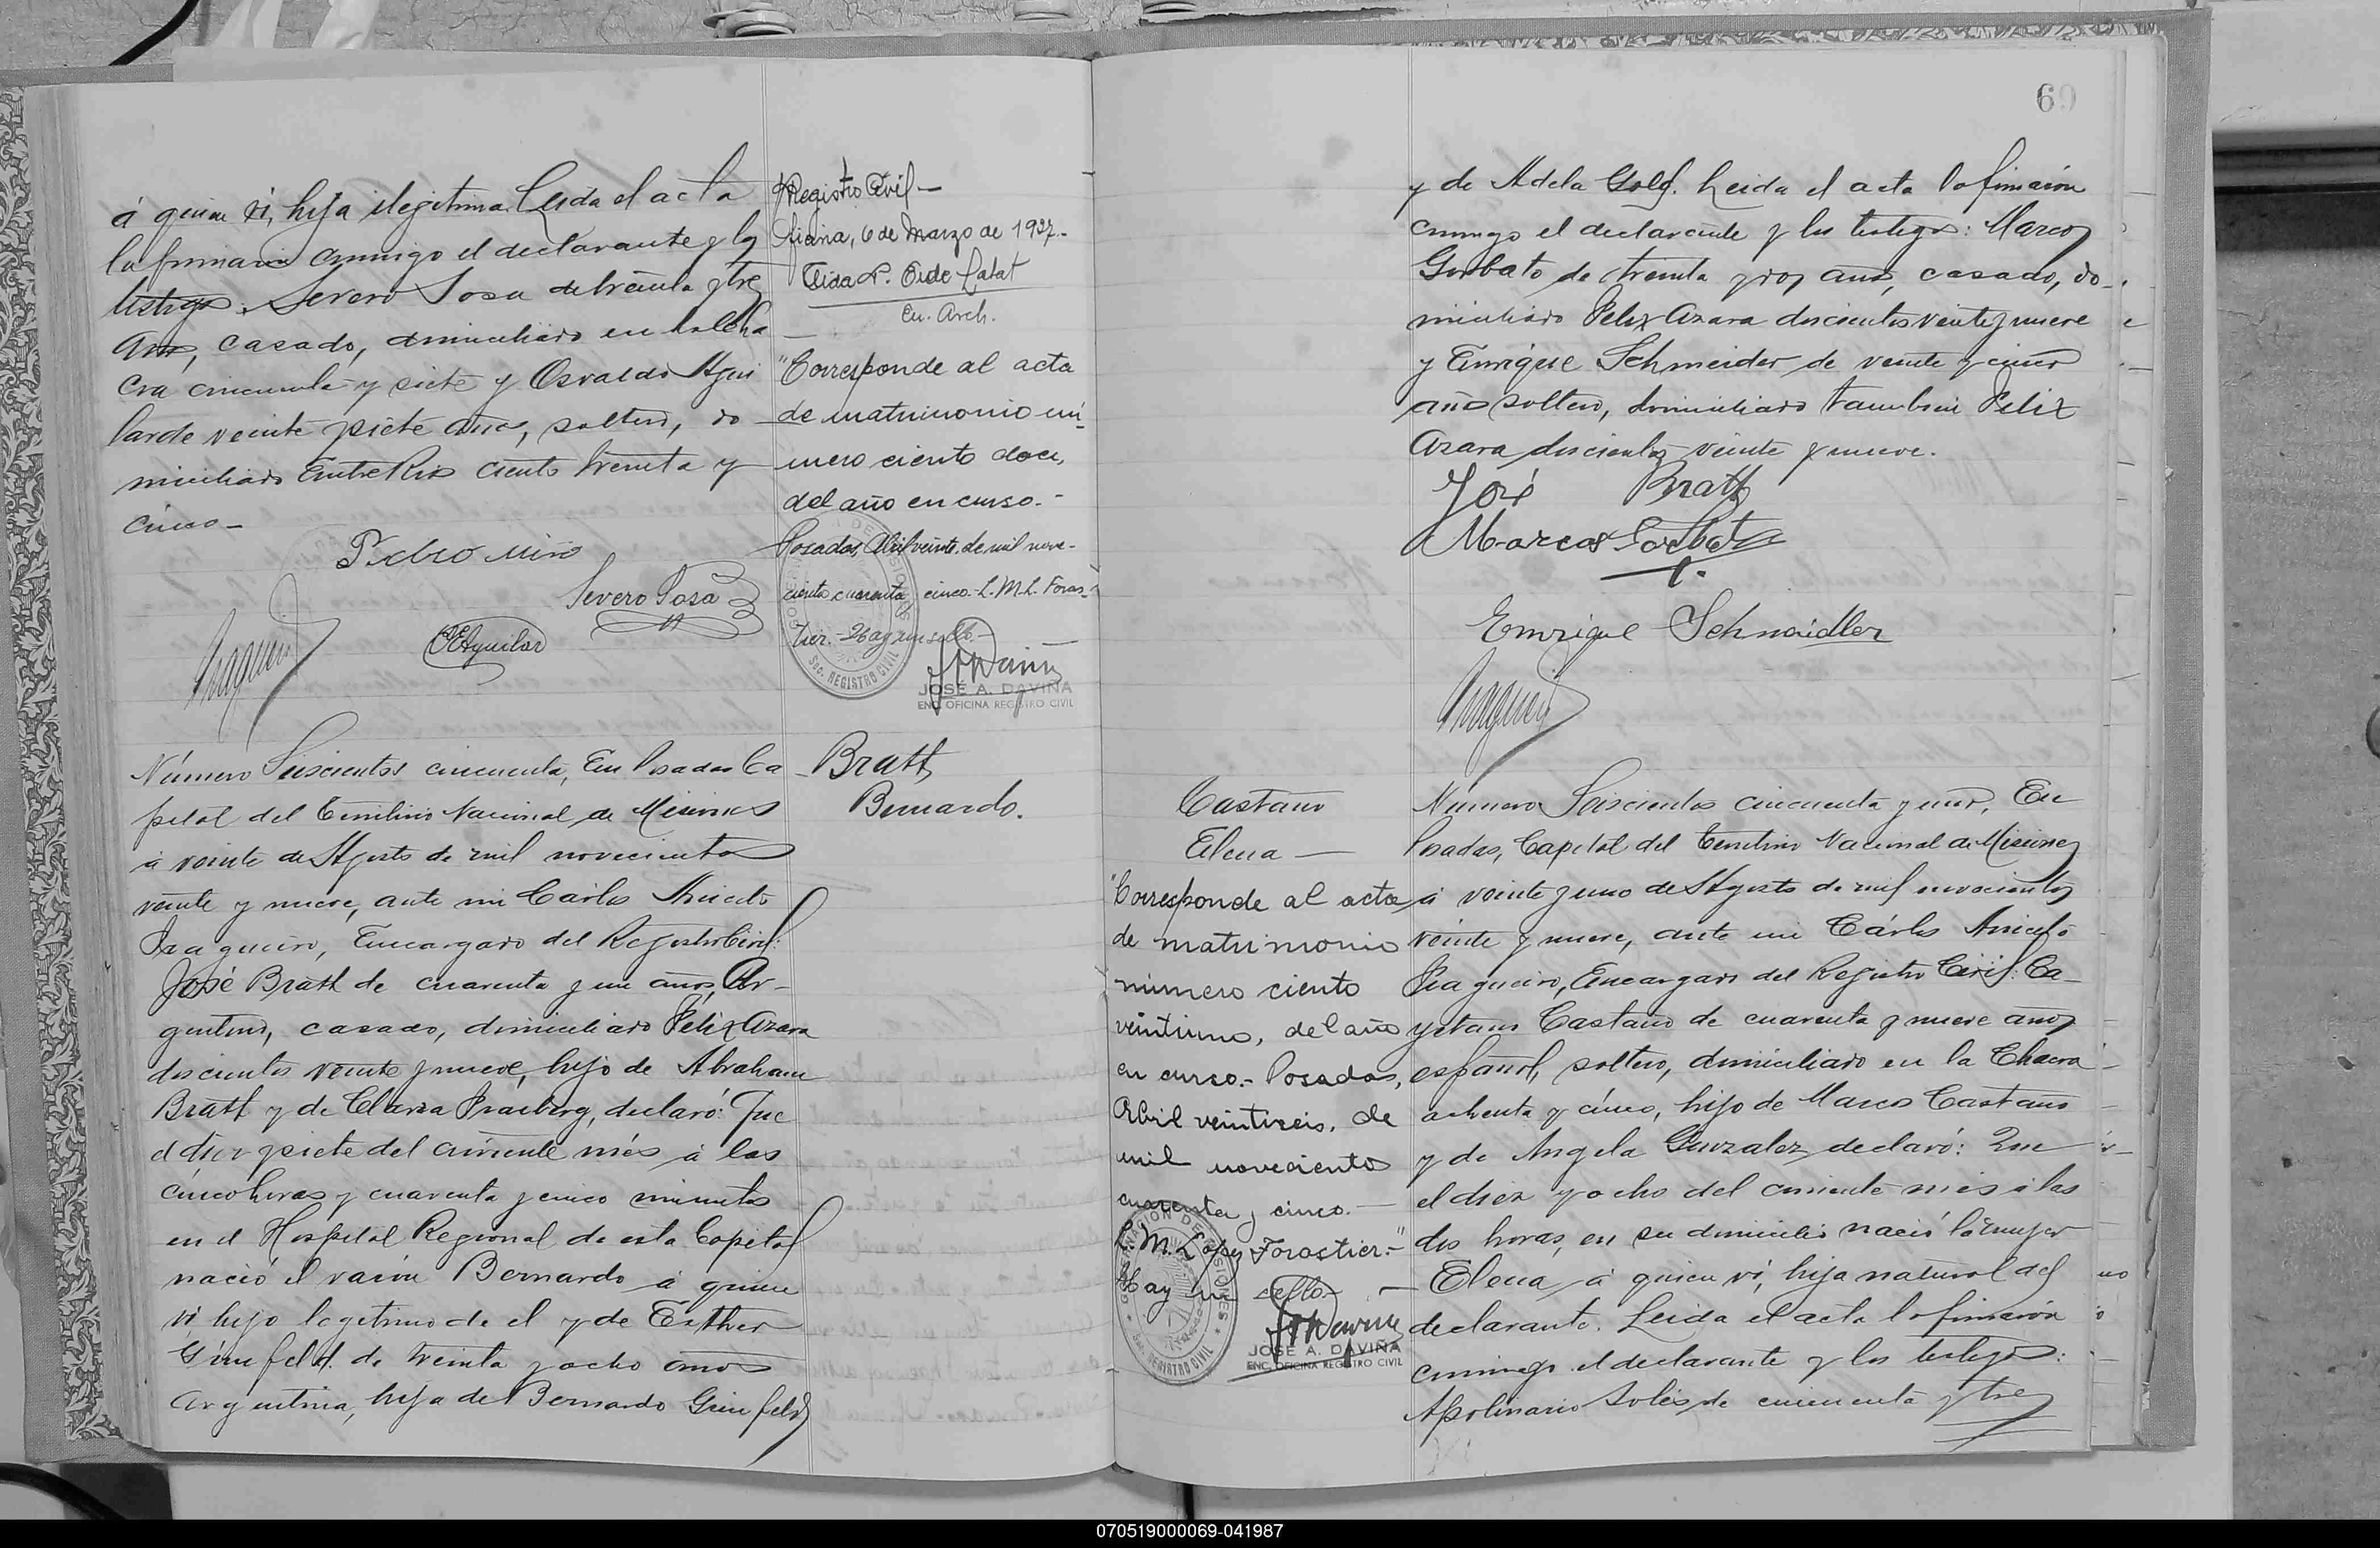 á quien ví, hija ilegitima. Leida el acta
la firmaron conmigo el declarante y los
testigos: Severo Sosa de treinta y tres
años, casado, domiciliado en la Cha
cra cincuenta y siete y Osvaldo Agui
lar de veinte y siete años, soltero, do
miciliado Entre Rios ciento treinta y
cinco-
Pedro Miño
Severo Sosa
OEAguilar
Registro Civil-
6 de Marzo de 1937.-
En. Arch.
"Corresponde al acta
de matrimonio nú-
mero ciento doce,
del año en curso.-
Posadas, Abril veinte, de mil nove-
ciento cuarenta y cinco.- L. M. L. Foras-
tier.- Hay un sello.-
SEC. REGISTRO CIVIL
JOSÉ A. DAVIÑA
ENC. OFICINA REGISTRO CIVIL
Número Seiscientos cincuenta, En Posadas Ca
pital del Territorio Nacional de Misiones
á veinte de Agosto de mil novecientos
veinte y nueve, ante mi Cárlos Aniceto
Fragueiro, Encargado del Registro Civil:
José Bratt de cuarenta y un años, Ar-
gentino, casado, domiciliado Felix Azara
doscientos veinte y nueve, hijo de Abraham
Bratt y de Clara, declaró: Que
el diez y siete del corriente més á las
cinco horas y cuarenta y cinco minutos
en el Hospital Regional de esta Capital
nació el varón Bernardo á quien
ví, hijo legitimo de el y de Esther
Grinfeld. de treinta y ocho años
Argentina, hija de Bernardo Grinfeld
Bratt
Bernardo.
69
y de Adela Golf. Leida el acta la firmaron
conmigo el declarante y los testigos: Marcos
Gorbato de treinta y dos años, casado, do-
miciliado Felix Azara doscientos veinte y nueve
y Enrique Schneider de veinte y cinco
años soltero, domiciliado tambien Felix
Azara doscientos veinte y nueve.
José Bratt
Marcos Gorbato
Enrique Schnaidler
Castaño
Elena -
"Corresponde al acta
de matrimonio
número ciento
veintiuno, del año
en curso.- Posadas,
Abril veintiseis, de
mil novecientos
cuarenta y cinco.-
L. M. Lopez Forastier.-"
Hay un sello.-
GOBERNACION DE MISIONES
SEC. REGISTRO CIVIL
JOSÉ A. DAVIÑA
ENC. OFICINA REGISTRO CIVIL
Número Seiscientos cincuenta y uno, En
Posadas, Capital del Territorio Nacional de Misiones
á veinte y uno de Agosto de mil novecientos
veinte y nueve, ante mi Cárlos Aniceto
Fragueiro, Encargado del Registro Civil: Ca-
yetano Castaño de cuarenta y nueve años
español, soltero, domiciliado en la Chacra
ochenta y cinco, hijo de Marcos Castaño
y de Angela Gonzalez, declaró: Que
el diez y ocho del corriente més á las
dos horas, en su domicilio nació la mujer
Elena á quien ví, hija natural del
declarante. Leida el acta la firmaron
conmigo el declarante y los testigos:
Apolinario Solís de cincuenta y tres
070519000069-041987